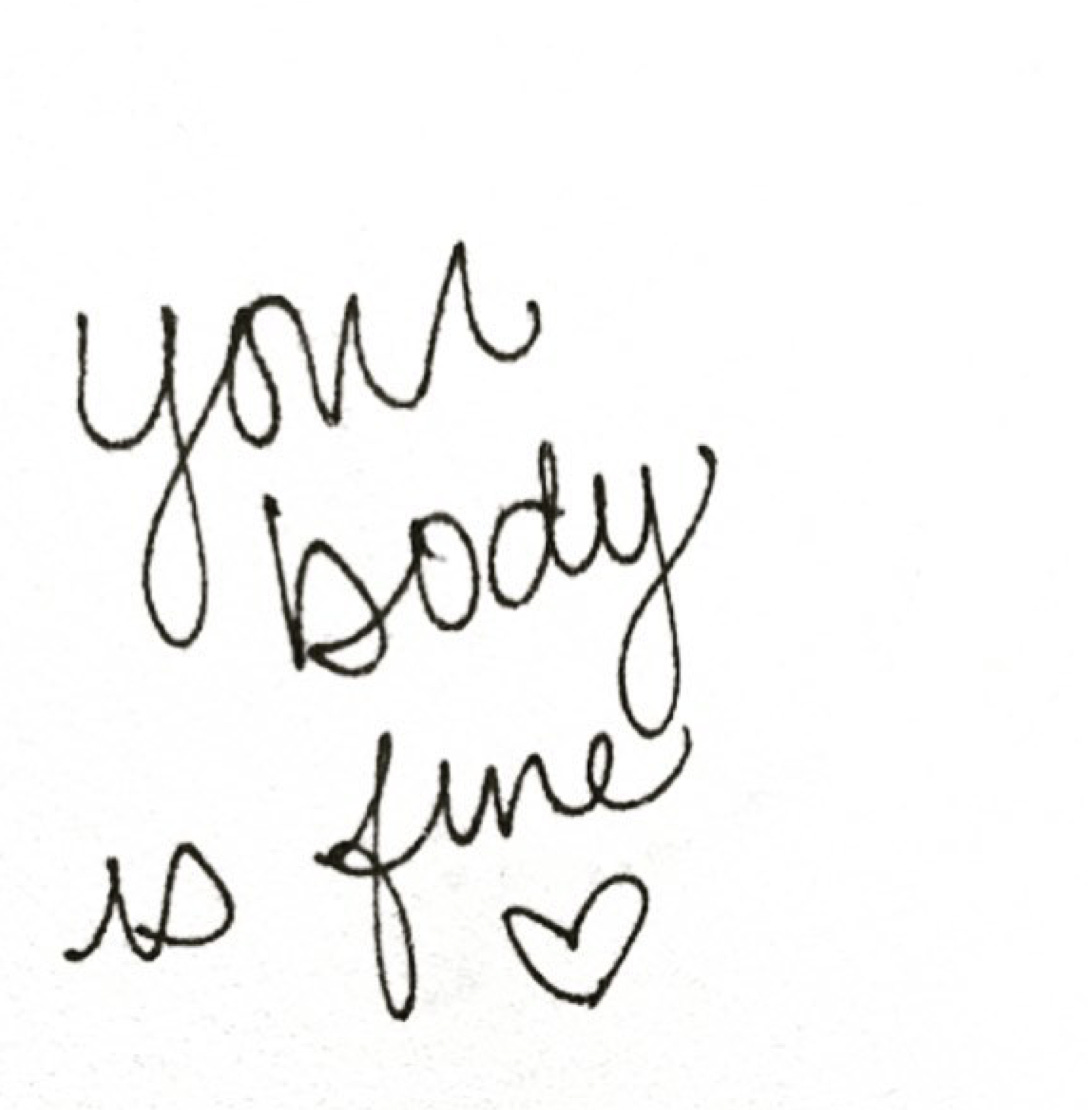 your
body
is fine